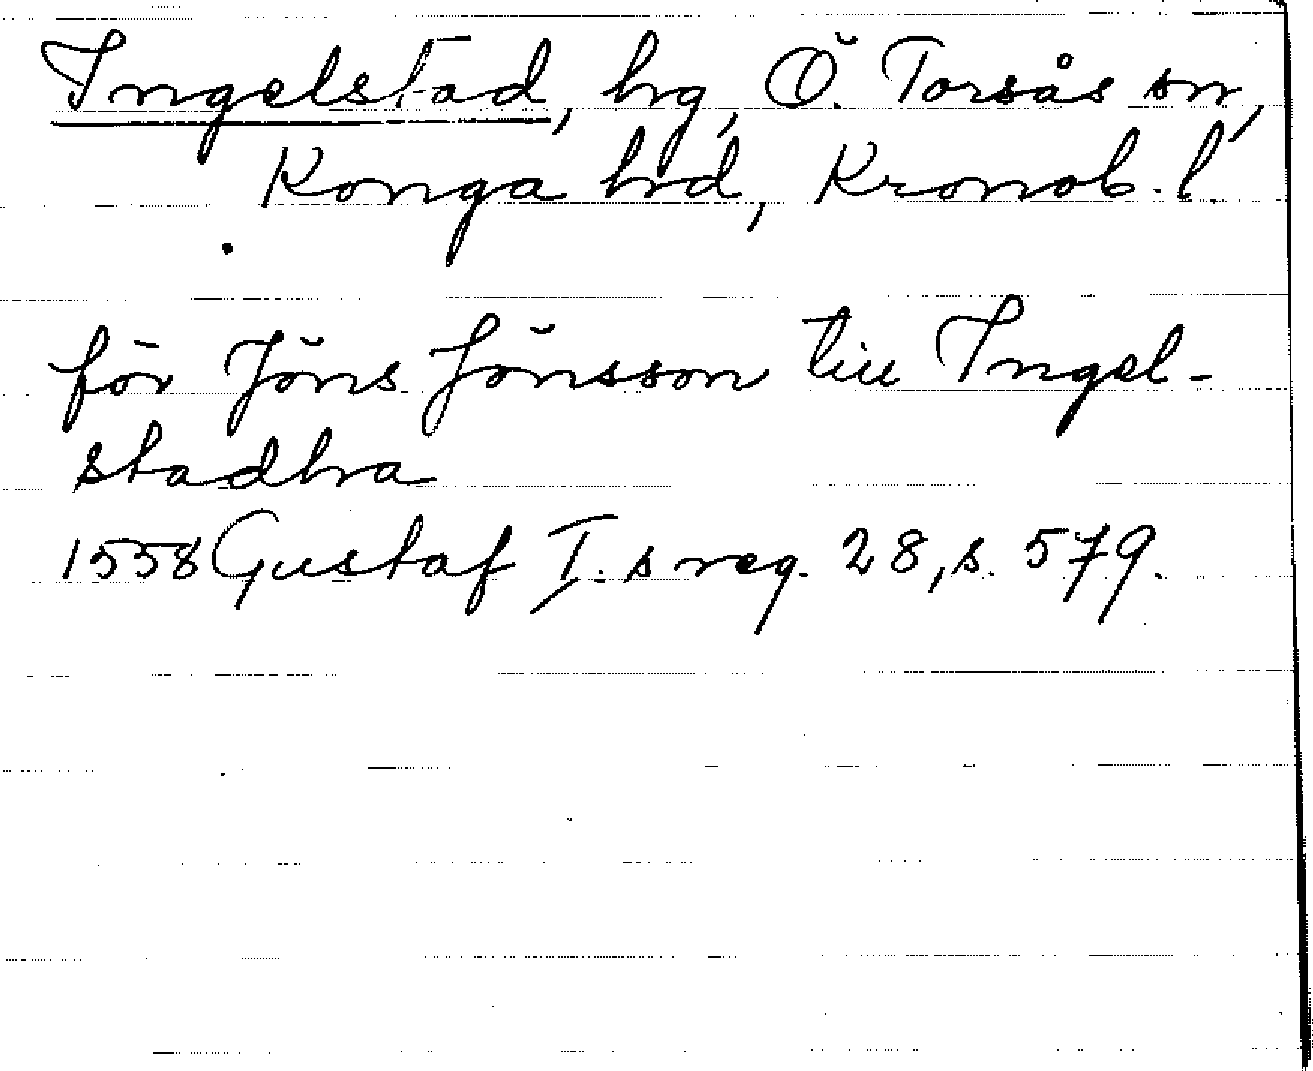 Ingelstad, hg, Ö. Torsås sn,
Konga hd, Kronob. l
för Jöns Jönsson till Ingel-
stadha
1558 Gustaf I:s reg. 28, s. 579.